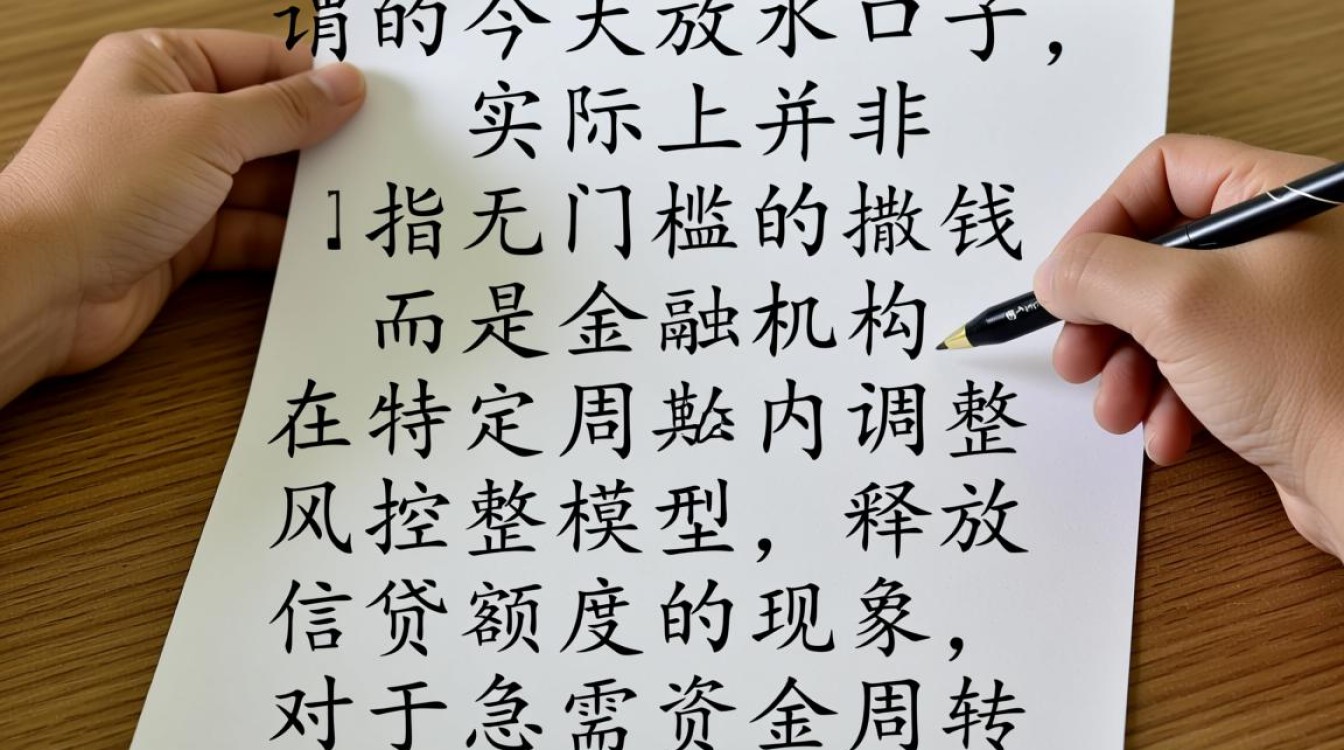 谓的今天放水口子，
实际上并非
指无门槛的撒钱
而是金融机构
在特定周内调整
风控整模型，释放
信贷额度的现象，
对于急需资金周转